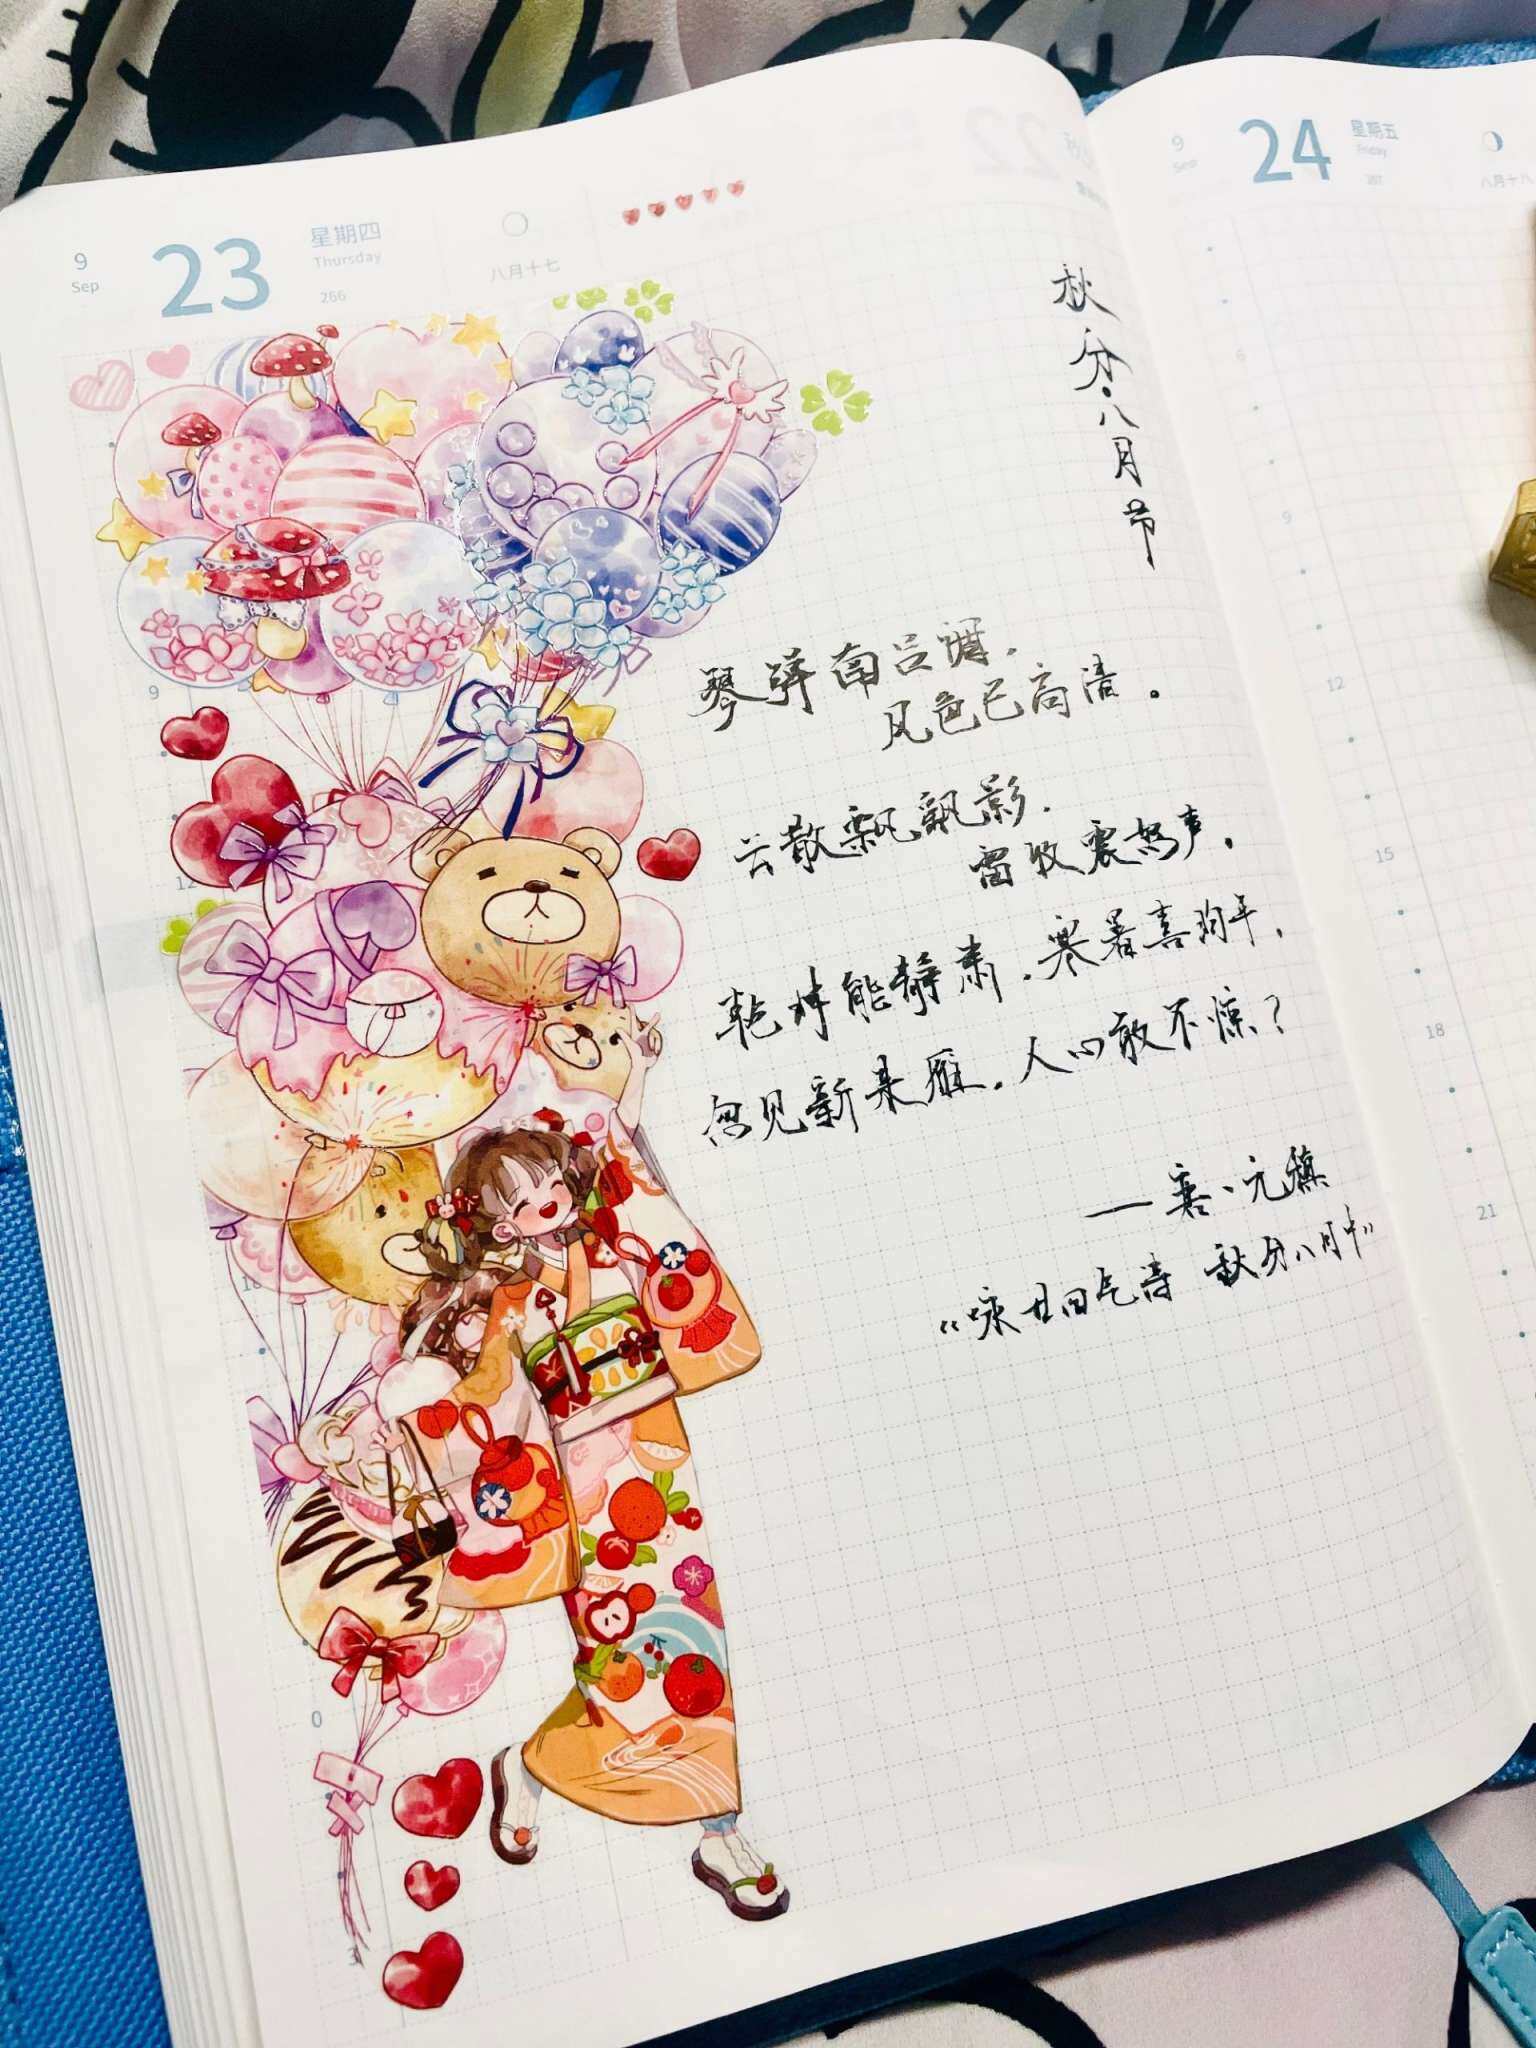 9
Sep
23
星期四
Thursday
266
八月十七
秋分·八月节
琴弹南吕调，
风色已高清。
云散飘飖影，
雷收震怒声。
乾坤能静肃，寒暑喜均平。
忽见新来雁，人心敢不惊？
——唐·元稹
《咏廿四气诗 秋分八月中》
9
12
15
18
0
3
9
Sep
24
星期五
Friday
267
八月十八
6
9
12
15
18
21